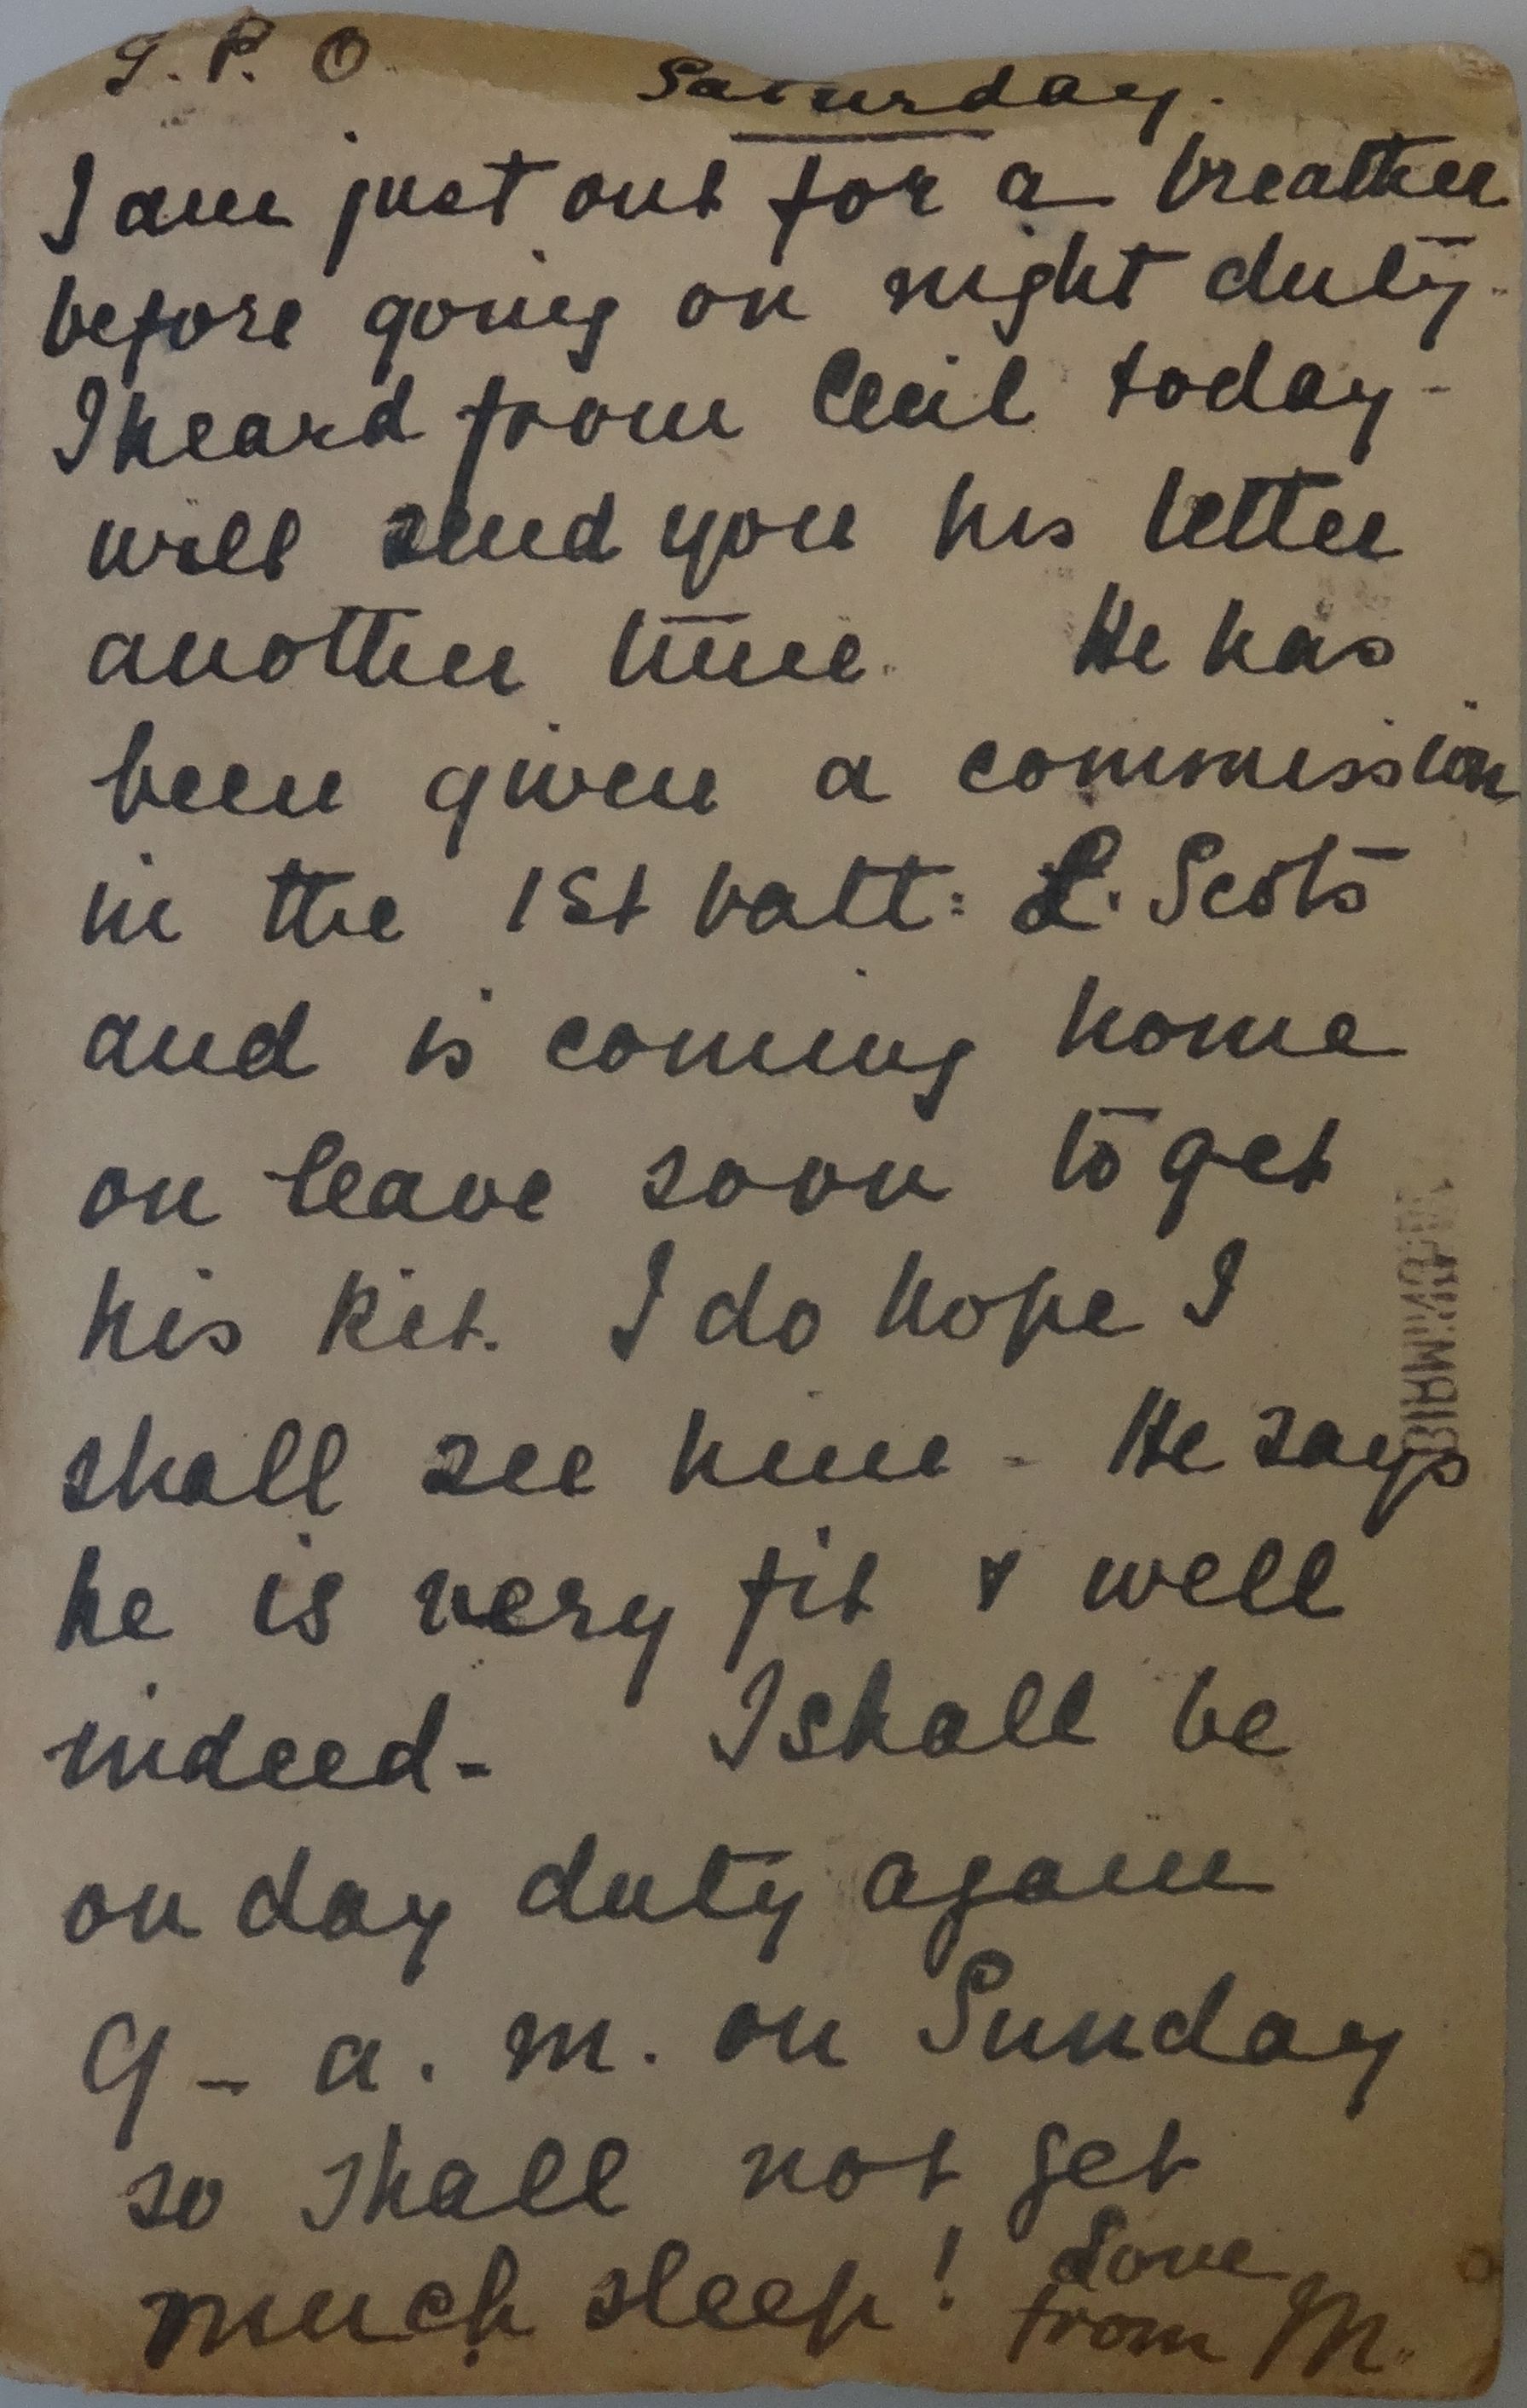 G. P. O. Saturday.
I am just out for a breather
before going on night duty.
I heard from Cecil today -
will send you his letter
another time. He has
been given a commission
in the 1st batt: L. Scots
and is coming home
on leave soon to get
his kit. I do hope I
shall see him - He says
he is very fit & well
indeed - I shall be
on day duty again
9 - a. m. on Sunday
so shall not get
much sleep! Love
from M.